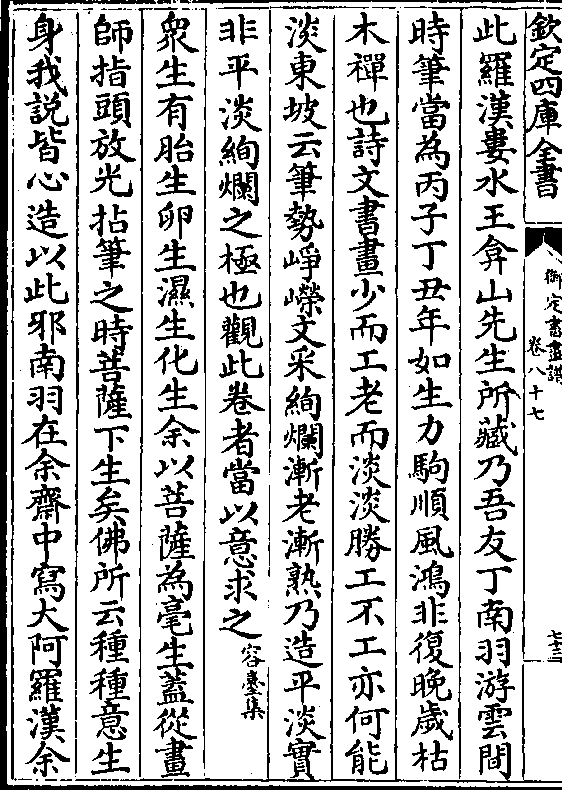 欽定四庫全書
御定書畫譜
卷八十七
七十三
此羅漢婁水王弇山先生所藏乃吾友丁南羽游雲間
時筆當為丙子丁丑年如生力駒順風鴻非復晚歲枯
木禪也詩文書畫少而工老而淡淡勝工不工亦何能
淡東坡云筆勢崢嶸文采絢爛漸老漸熟乃造平淡實
非平淡絢爛之極也觀此卷者當以意求之容臺集
衆生有胎生卵生濕生化生余以菩薩為毫生蓋從畫
師指頭放光拈筆之時菩薩下生矣佛所云種種意生
身我説皆心造以此邪南羽在余齋中寫大阿羅漢余